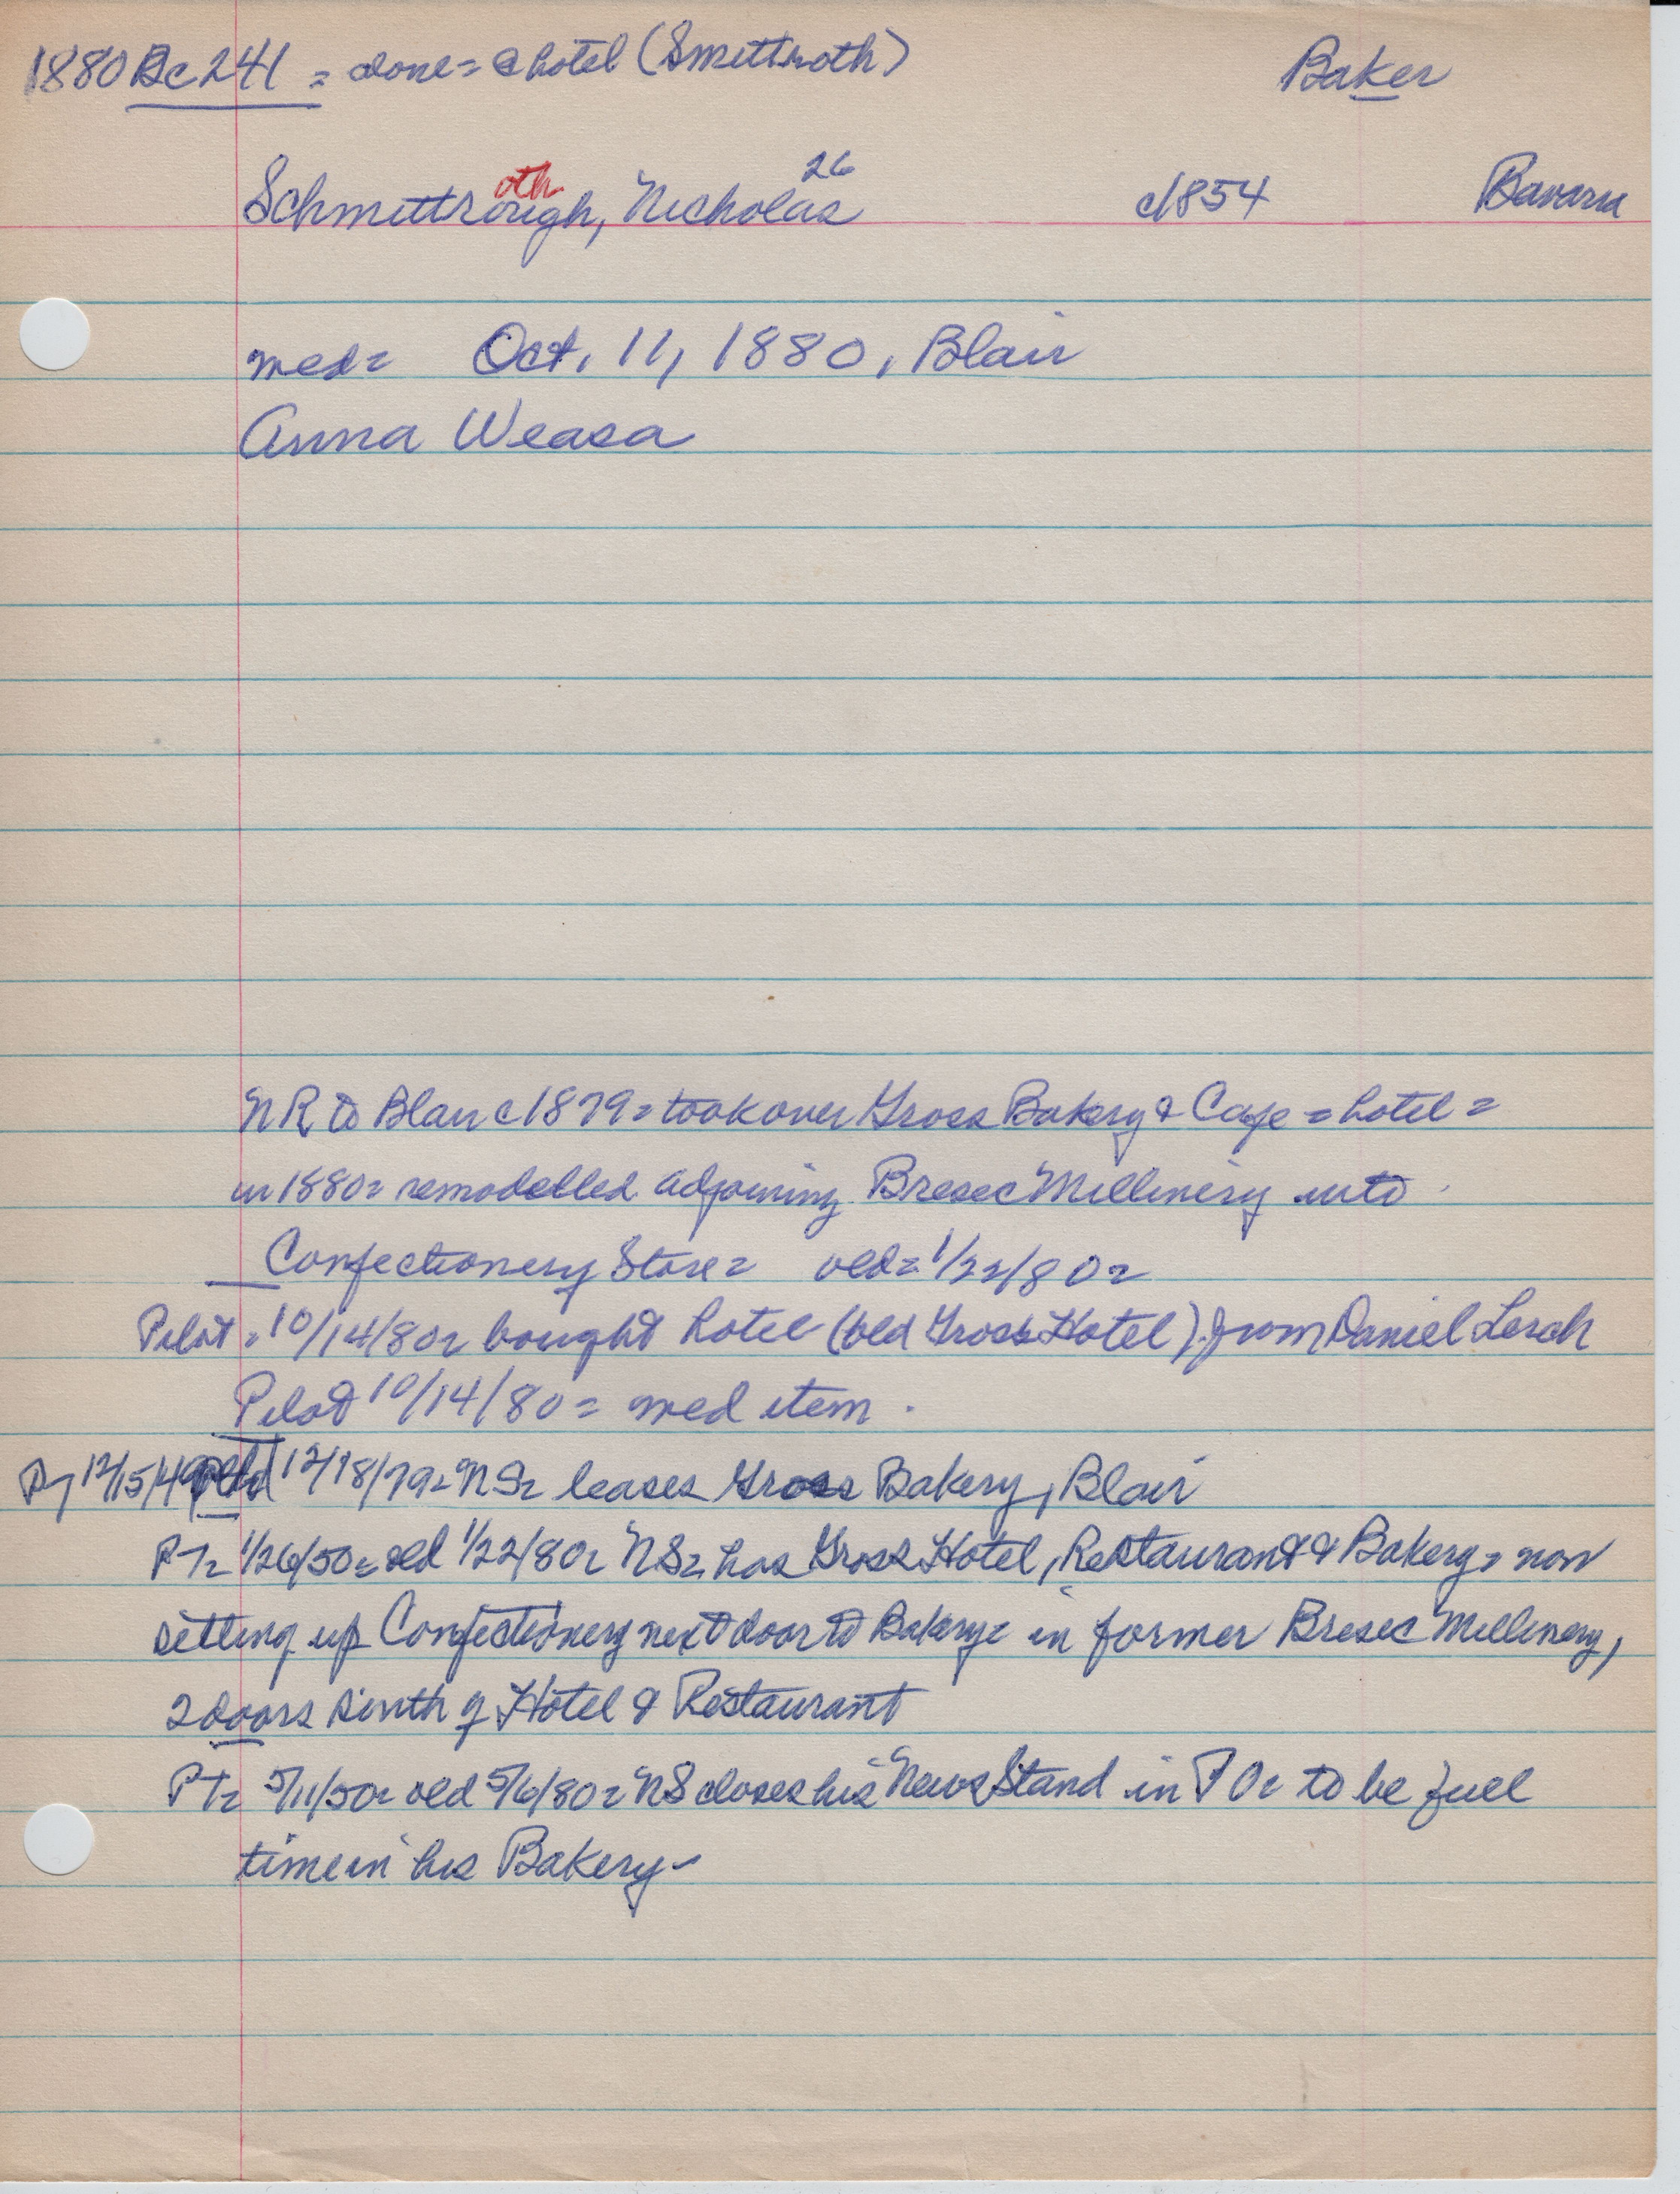 1880 Bc 241 = done = @ hotel (Smittroth) Baker
oth 26
Schmittrough, Nicholas c1854 Bavaria
med = Oct. 11, 1880, Blair
Anna Weasa
NR to Blair c1879 = took over Gross Bakery & Cafe = hotel =
in 1880 = remodelled adjoining Bresee Millinery into
Confectionery Store = old = 1/22/80 =
Pilot = 10/14/80 = bought hotel (old Gross Hotel) from Daniel Lerch
Pilot 10/14/80 = med item.
PT 12/15/49 old 12/18/79 = NS = leases Gross Bakery, Blair
PT = 1/26/50 = old 1/22/80 = NS = has Gross Hotel, Restaurant & Bakery = now
setting up Confectionery next door to Bakery = in former Bresee Millinery,
2 doors south of Hotel & Restaurant
PT = 5/11/50 = old 5/6/80 = NS closes his News Stand in PO = to be full
time in his Bakery -